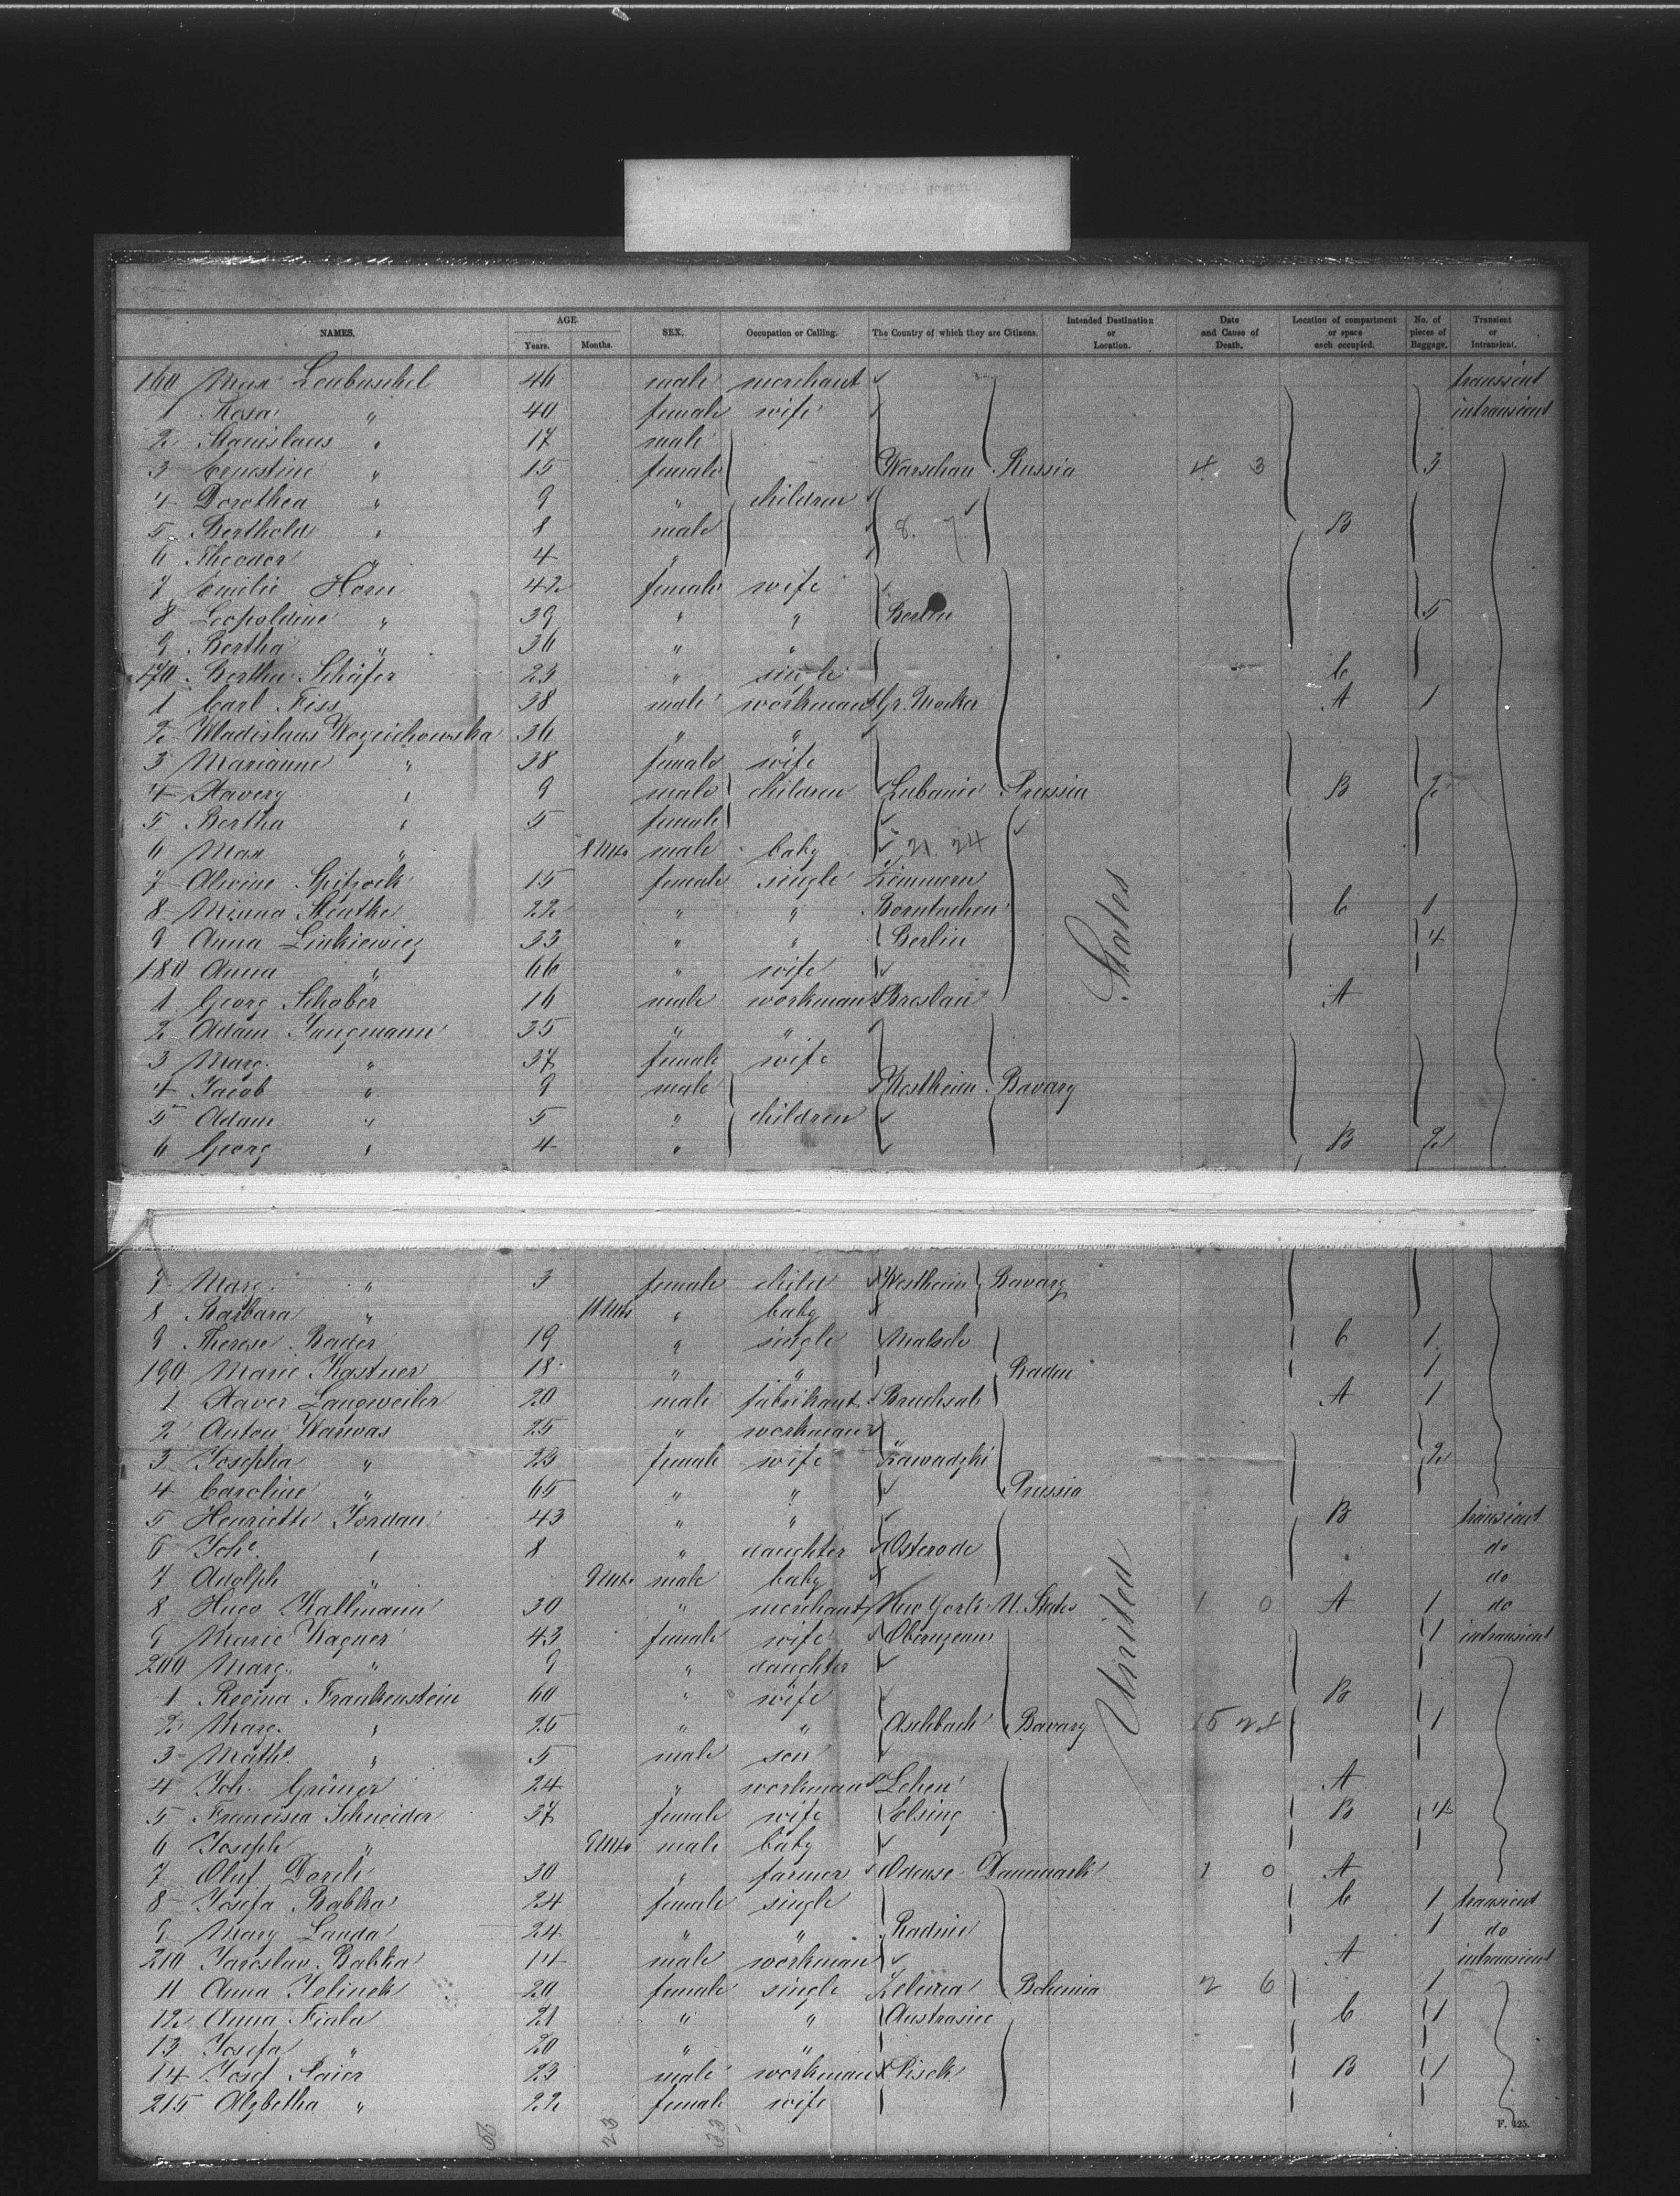 NAMES. AGE. Years. Months. SEX. Occupation or Calling. The Country of which they are Citizens. Intended Destination or Location. Date and Cause of Death. Location of compartment or space each occupied. No. of pieces of Baggage. Transient or Intransient.
160 Max Loubuschel 46 male merchant transient
1 Rosa " 40 female wife intransient
2 Stanislaus " 17 male
3 Ernestine " 15 female Warschau Russia 4 3 3
4 Dorothea " 9 " children
5 Berthold " 8 male 8. 7 B
6 Theodor " 4 "
7 Emilie Horn 42 female wife
8 Leopoldine " 39 " " Berlin 5
9 Bertha " 36 " "
170 Bertha Schäfer 23 " single C
1 Carl Fiss 38 male workman Gr. Mocker A 1
2 Wladislaus Wozeichowska 36 " "
3 Marianne " 38 female wife
4 Xavery " 9 male children Lubanie Prussia B 2
5 Bertha " 5 female
6 Max " 8 Mts male baby 21 24
7 Alwine 15 female single Zimmern
8 Minna 22 " " C 1
9 Anna Linkiewicz 33 " " Berlin 4
180 Anna " 66 " wife
1 Georg Schober 16 male workman Breslau A
2 Adam Jungmann 35 " "
3 Marg. " 37 female wife
4 Jacob " 9 male Westheim Bavary
5 Adam " 5 " children
6 Georg " 4 " B 2
States
7 Marg. " 3 female child Westheim Bavary
8 Barbara " 11 Mts " baby
9 Therese Bader 19 " single Malsch C 1
190 Marie Kastner 18 " " Baden 1
1 Xaver Langweiler 20 male fabrikant Bruchsal A 1
2 Anton Warwas 25 " workman
3 Josepha " 23 female wife Zawadzki 2
4 Caroline " 65 " " Prussia
5 Henriette Jordan 43 " " B transient
6 Johe. " 8 " daughter Osterode do
7 Adolph " 9 Mts. male baby do
8 Hugo Kallmann 30 " merchant New York U. States 1 0 A 1 do
9 Marie Wagner 43 female wife 1 intransient
200 Marg. " 9 " daughter
1 Regina Frankenstein 60 " wife B
2 Marg. " 26 " " Aschbach Bavary 15 24 1
3 Maths. " 5 male son
4 Joh. Grimer 24 " workman Lehen A
5 Francisca Schneider 37 female wife Elsing B 4
6 Joseph " 9 Mts male baby
7 Oluf 30 " farmer Odense Danmark 1 0 A
8 Josefa Babka 24 female single C 1 transient
9 Mary Landa 24 " " Radnic 1 do
210 Jaroslav Babka 14 male workman A intransient
11 Anna Jelinek 20 female single Bohemia 2 6 1
12 Anna Fiala 21 " " C 1
13 Josefa " 20 " "
14 Josef Saier 23 male workman Pisek B 1
215 Alzbetha " 22 female wife
United
F. 425.